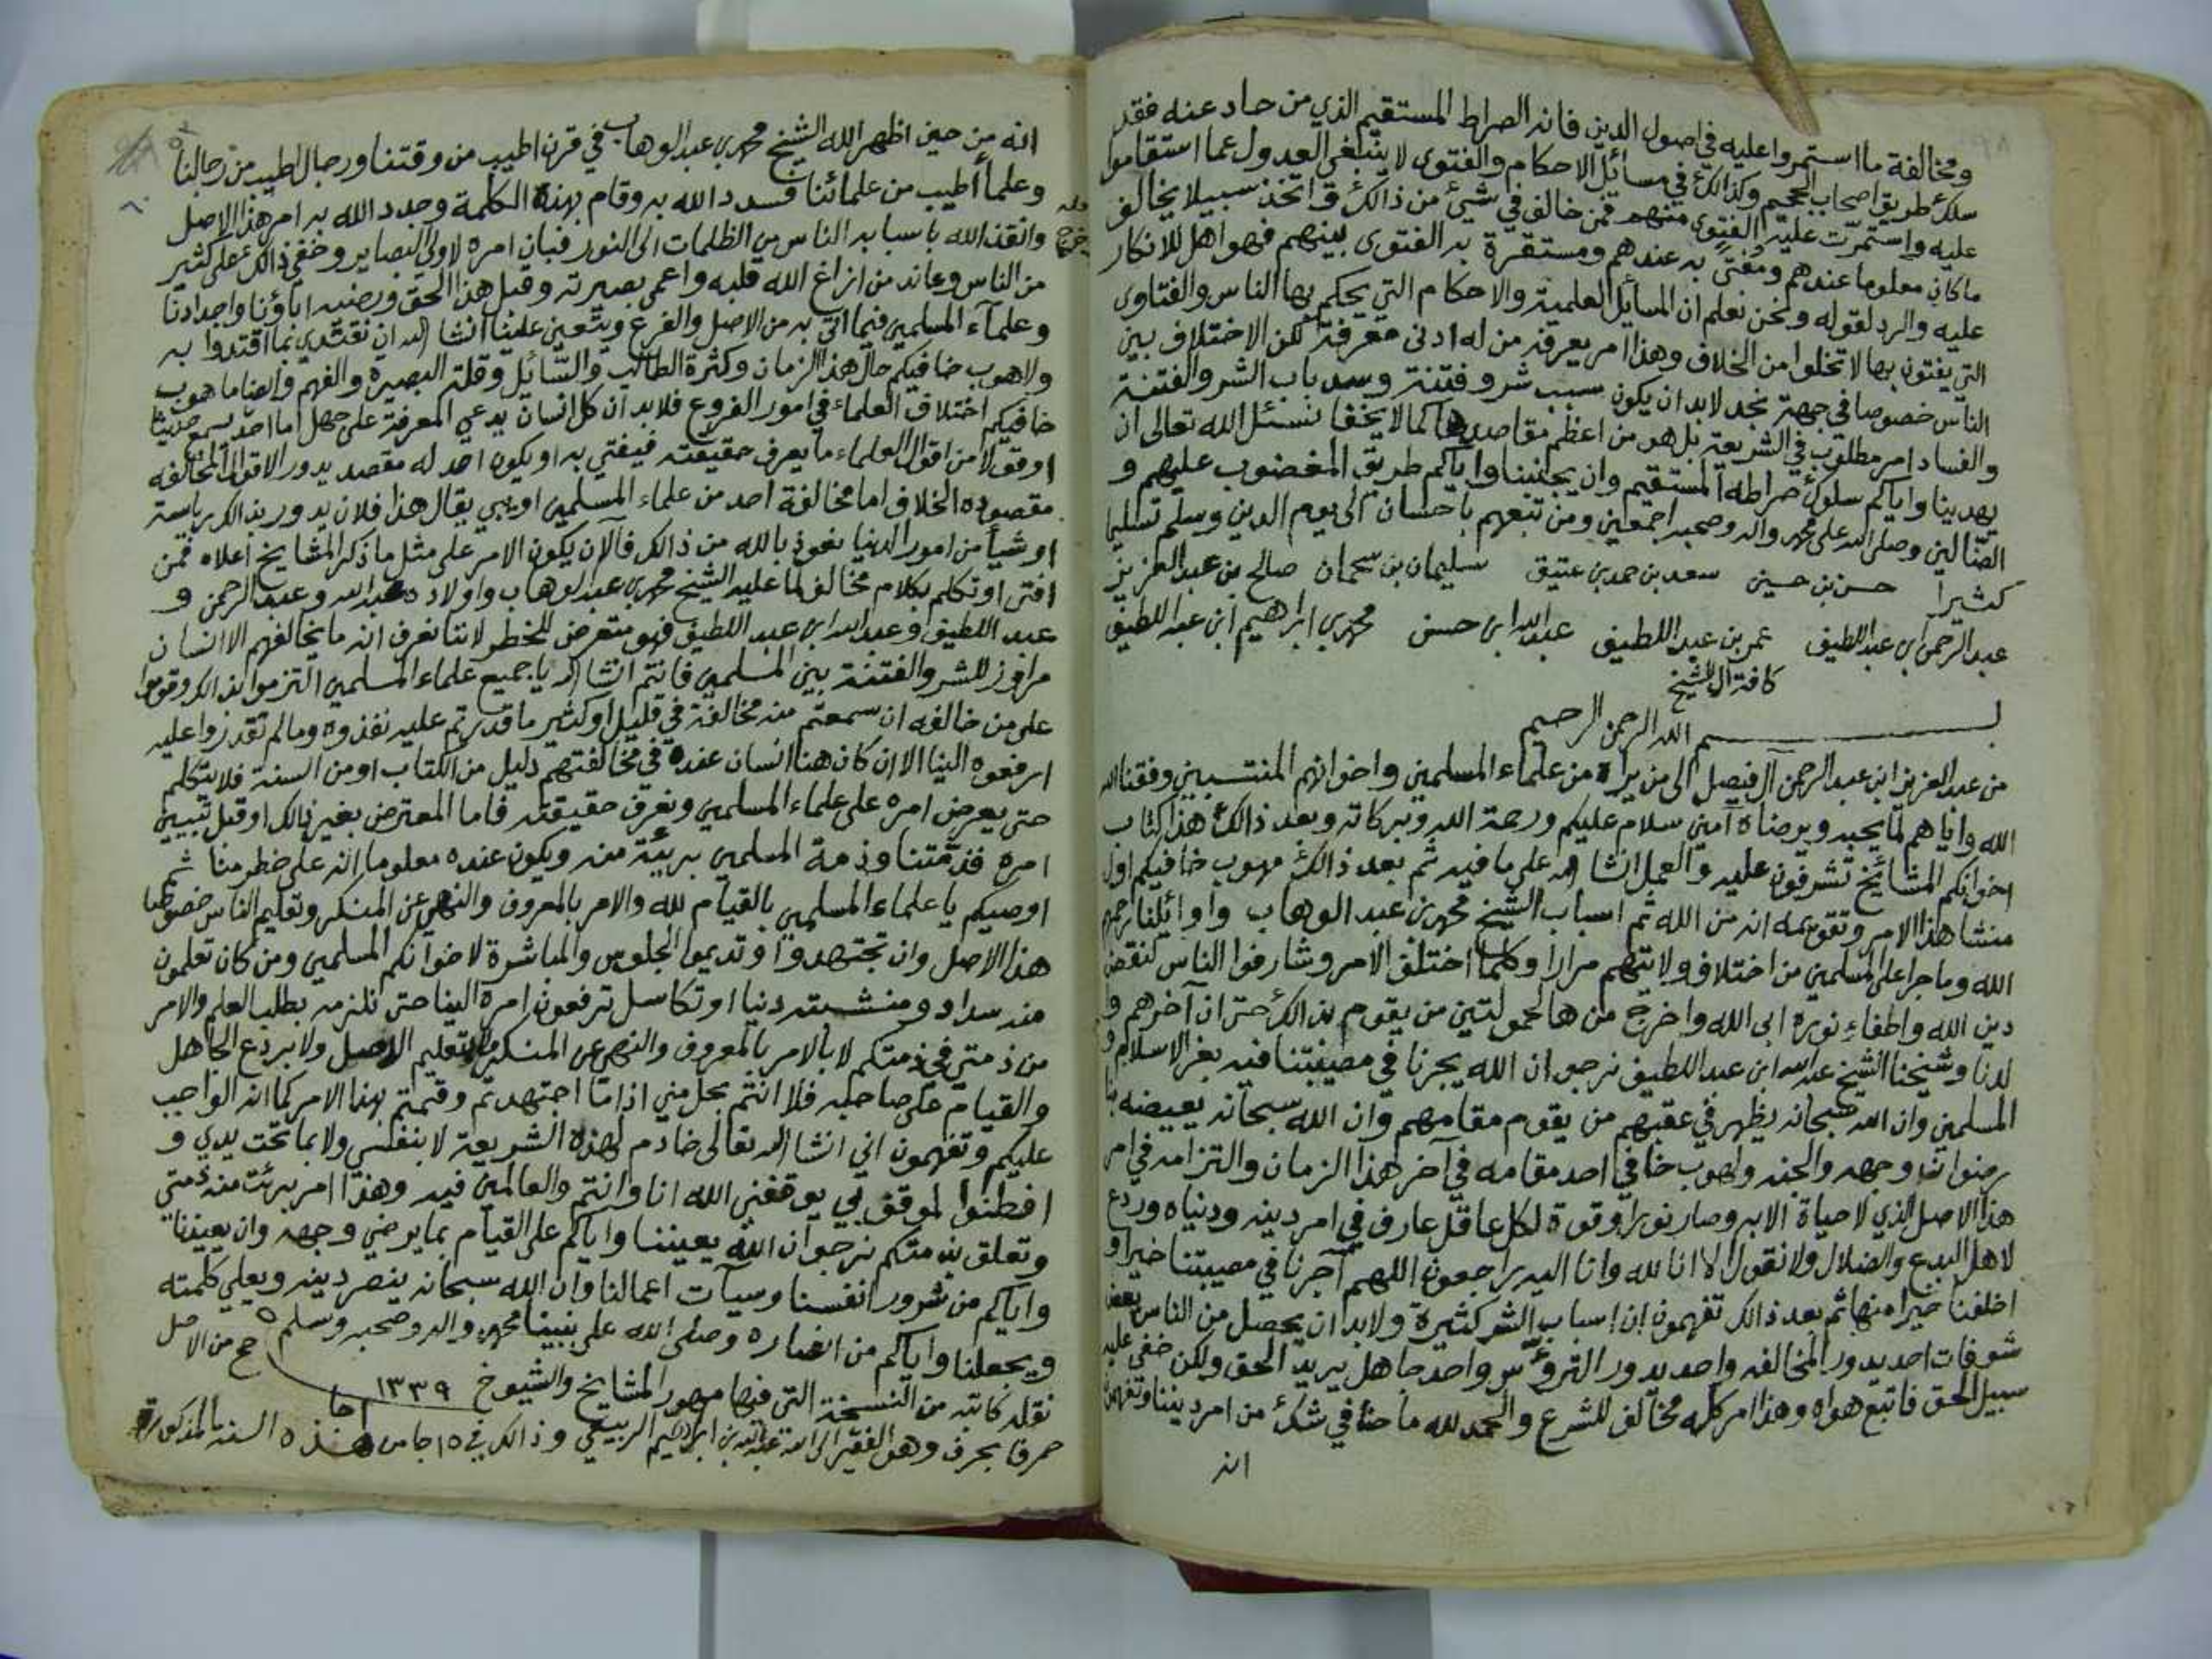 ومخالفة ما استمروا عليه في اصول الدين فانه الصراط المستقيم الذي من حاد عنه فقد
سلك طريق اصحاب الجحيم وكذالك في مسائل الاحكام والفتوى لا ينبغي العدول عما استقاموا
عليه واستمرت عليه الفتوى منهم فمن خالف في شيئ من ذالك واتخذ سبيلا يخالف
ما كان معلوما عندهم ومفتىً به عندهم ومستقرة به الفتوى بينهم فهو اهل للانكار
عليه والرد لقوله ونحن نعلم ان المسائل العلمية والاحكام التي يحكم بها الناس والفتاوى
التي يفتون بها لا تخلوا من الخلاف وهذا امر يعرفه من له ادنى معرفة لكن الاختلاف بين
الناس خصوصا في جهة نجد لابد ان يكون سبب شر وفتنة وسد باب الشر والفتنة
والفساد امر مطلوب في الشريعة بل هو من اعظم مقاصدها كما لا يخفا نسئل الله تعالى ان
يهدينا واياكم سلوك صراطه المستقيم وان يجنبنا واياكم طريق المغضوب عليهم و
الضالين وصلى الله على محمد واله وصحبه اجمعين ومن تبعهم باحسان الى يوم الدين وسلم تسليما
كثيرا حسن بن حسين سعد بن حمد بن عتيق سليمان بن سحمان صالح بن عبد العزيز
عبد الرحمن ابن عبد اللطيف عمر بن عبد اللطيف عبد الله ابن حسن محمد بن ابراهيم ابن عبد اللطيف
كافة آل الشيخ
بسم الله الرحمن الرحيم
من عبد العزيز ابن عبد الرحمن آل فيصل الى من يراه من علماء المسلمين واخوانهم المنتسبين وفقنا الله
الله واياهم لما يحبه ويرضاه آمين سلام عليكم ورحمة الله وبركاته وبعد ذالك هذا كتاب
اخوانكم المشائخ تشرفون عليه والعمل انشا الله على ما فيه ثم بعد ذالك مهوب خافيكم اول
منشا هذا الامر وتقويمه انه من الله ثم اسباب الشيخ محمد بن عبد الوهاب واوائلنا رحمهم
الله وما جرا على المسلمين من اختلاف ولايتهم مرارا وكلما اختلف الامر وشارفوا الناس لنقض
دين الله واطفاء نوره ابى الله واخرج من هالحمولتين من يقوم بذالك حتى ان آخرهم وا
لدنا وشيخنا الشيخ عبد الله ابن عبد اللطيف نرجو ان الله يجبرنا في مصيبتنا فيه بعز الاسلام و
المسلمين وان الله سبحانه يظهر في عقبهم من يقوم مقامهم وان الله سبحانه يعيضه بنا
رضوانه وجهه والجنه ولاهوب خافي احد مقامه في آخر هذا الزمان والتزامه في امر
هذا الاصل الذي لا حياة الا به وصار نورا وقوة لكل عاقل عارف في امر دينه ودنياه وردع
لاهل البدع والضلال ولا نقول الا انا لله وانا اليه راجعون اللهم آجرنا في مصيبتنا خيرا و
اخلفنا خيرا منها ثم بعد ذالك تفهمون ان اسباب الشر كثيرة ولابد ان يحصل من الناس بعض
شوفات احد يدور المخالفه واحد يدور التروّس واحد جاهل يريد الحق ولكن خفي عليه
سبيل الحق فاتبع هواه وهذا امر كله مخالف للشرع والحمد لله ما حنا في شك من امر ديننا وتفهمون
انه
انه من حين اظهر الله الشيخ محمد بن عبد الوهاب في قرن اطيب من وقتنا ورجال اطيب من رجالنا
وعلماً أطيب من علمائنا فسدد الله به وقام بهذه الكلمة وجدد الله به امر هذا الاصل
وانقذ الله باسبابه الناس من الظلمات الى النور فبان امره لاولي البصاير وخفي ذالك على كثير
من الناس وعاند من ازاغ الله قلبه واعمى بصيرته وقبل هذا الحق ورضيه اباؤنا واجدادنا
وعلمآء المسلمين فيما اتى به من الاصل والفرع ويتعين علينا انشا الله ان نقتدي بما اقتدوا به
ولاهوب خافيكم حال هذا الزمان وكثرة الطالب والسّائل وقلة البصيرة والفهم وايضا ما هوب
خافيكم اختلاف العلماء في امور الفروع فلابد ان كل انسان يدعي المعرفة على جهل اما احد يسمع حديثا
اوقولا من اقوال العلماء ما يعرف حقيقته فيفتي به او يكون احد له مقصد يدور الاقوال المخالفه
مقصوده الخلاف اما مخالفة احد من علماء المسلمين او يبي يقال هذا فلان يدور بذالك رياسة
او شيأ من امور الدنيا نعوذ بالله من ذالك فآلان يكون الامر على مثل ما ذكر المشايخ اعلاه فمن
افتى او تكلم بكلام مخالف لما عليه الشيخ محمد بن عبد الوهاب واولاده عبد الله وعبد الرحمن و
عبد اللطيف وعبد الله ابن عبد اللطيف فهو متعرض للخطر لاننا نعرف انه ما يخالفهم الا انسان
مراوز للشر والفتنة بين المسلمين فانتم انشا الله يا جميع علماء المسلمين التزموا بذالك وقوموا
على من خالفه ان سمعتم منه مخالفة في قليل او كثير ما قدرتم عليه نفذوه وما لم تقدروا عليه
ارفعوه الينا الا ان كان هنا انسان عنده في مخالفتهم دليل من الكتاب او من السنة فلا يتكلم
حتى يعرض امره على علماء المسلمين ونعرف حقيقته فاما المعترض بغير ذالك او قبل تبيين
امره فذمّتنا وذمة المسلمين بريئة منه ويكون عنده معلوما انه على خطر منا ثم
اوصيكم يا علماء المسلمين بالقيام لله والامر بالمعروف والنهي عن المنكر وتعليم الناس خصوصا
هذا الاصل وان تجتهدوا وتديموا الجلوس والمباشرة لاخوانكم المسلمين ومن كان تعلمون
منه سداد ومنشبته دنيا او تكاسل ترفعون امره الينا حتى نلزمه بطلب العلم والامر
من ذمتي في ذمتكم لا بالامر بالمعروف والنهي عن المنكر ولا بتعليم الاصل ولا بردع الجاهل
والقيام على صاحبه فلا انتم بحل مني اذا ما اجتهدتم وقمتم بهذا الامر كما انه الواجب
عليكم وتفهمون اني انشا الله تعالى خادم لهذه الشريعة لا بنفسي ولا بما تحت يدي و
افطنوا لموقف بي يوقفني الله انا وانتم والعالمين فيه وهذا امر برئت منه ذمتي
وتعلق بذمتكم نرجو ان الله يعيننا واياكم على القيام بما يرضي وجهه وان يعيذنا
واياكم من شرور انفسنا وسيآت اعمالنا وان الله سبحانه ينصر دينه ويعلي كلمته
ويجعلنا واياكم من انصاره وصلى الله على نبينا محمد واله وصحبه وسلم ٥
نقله كاتبه من النسخة التي فيها مهور المشايخ والشيوخ ١٣٣٩ صح من الاصل
حرفا بحرف وهو الفقير الى الله عبد الله بن ابراهيم الربيعي وذالك في ١٥ جا من هذه السنة المذكورة